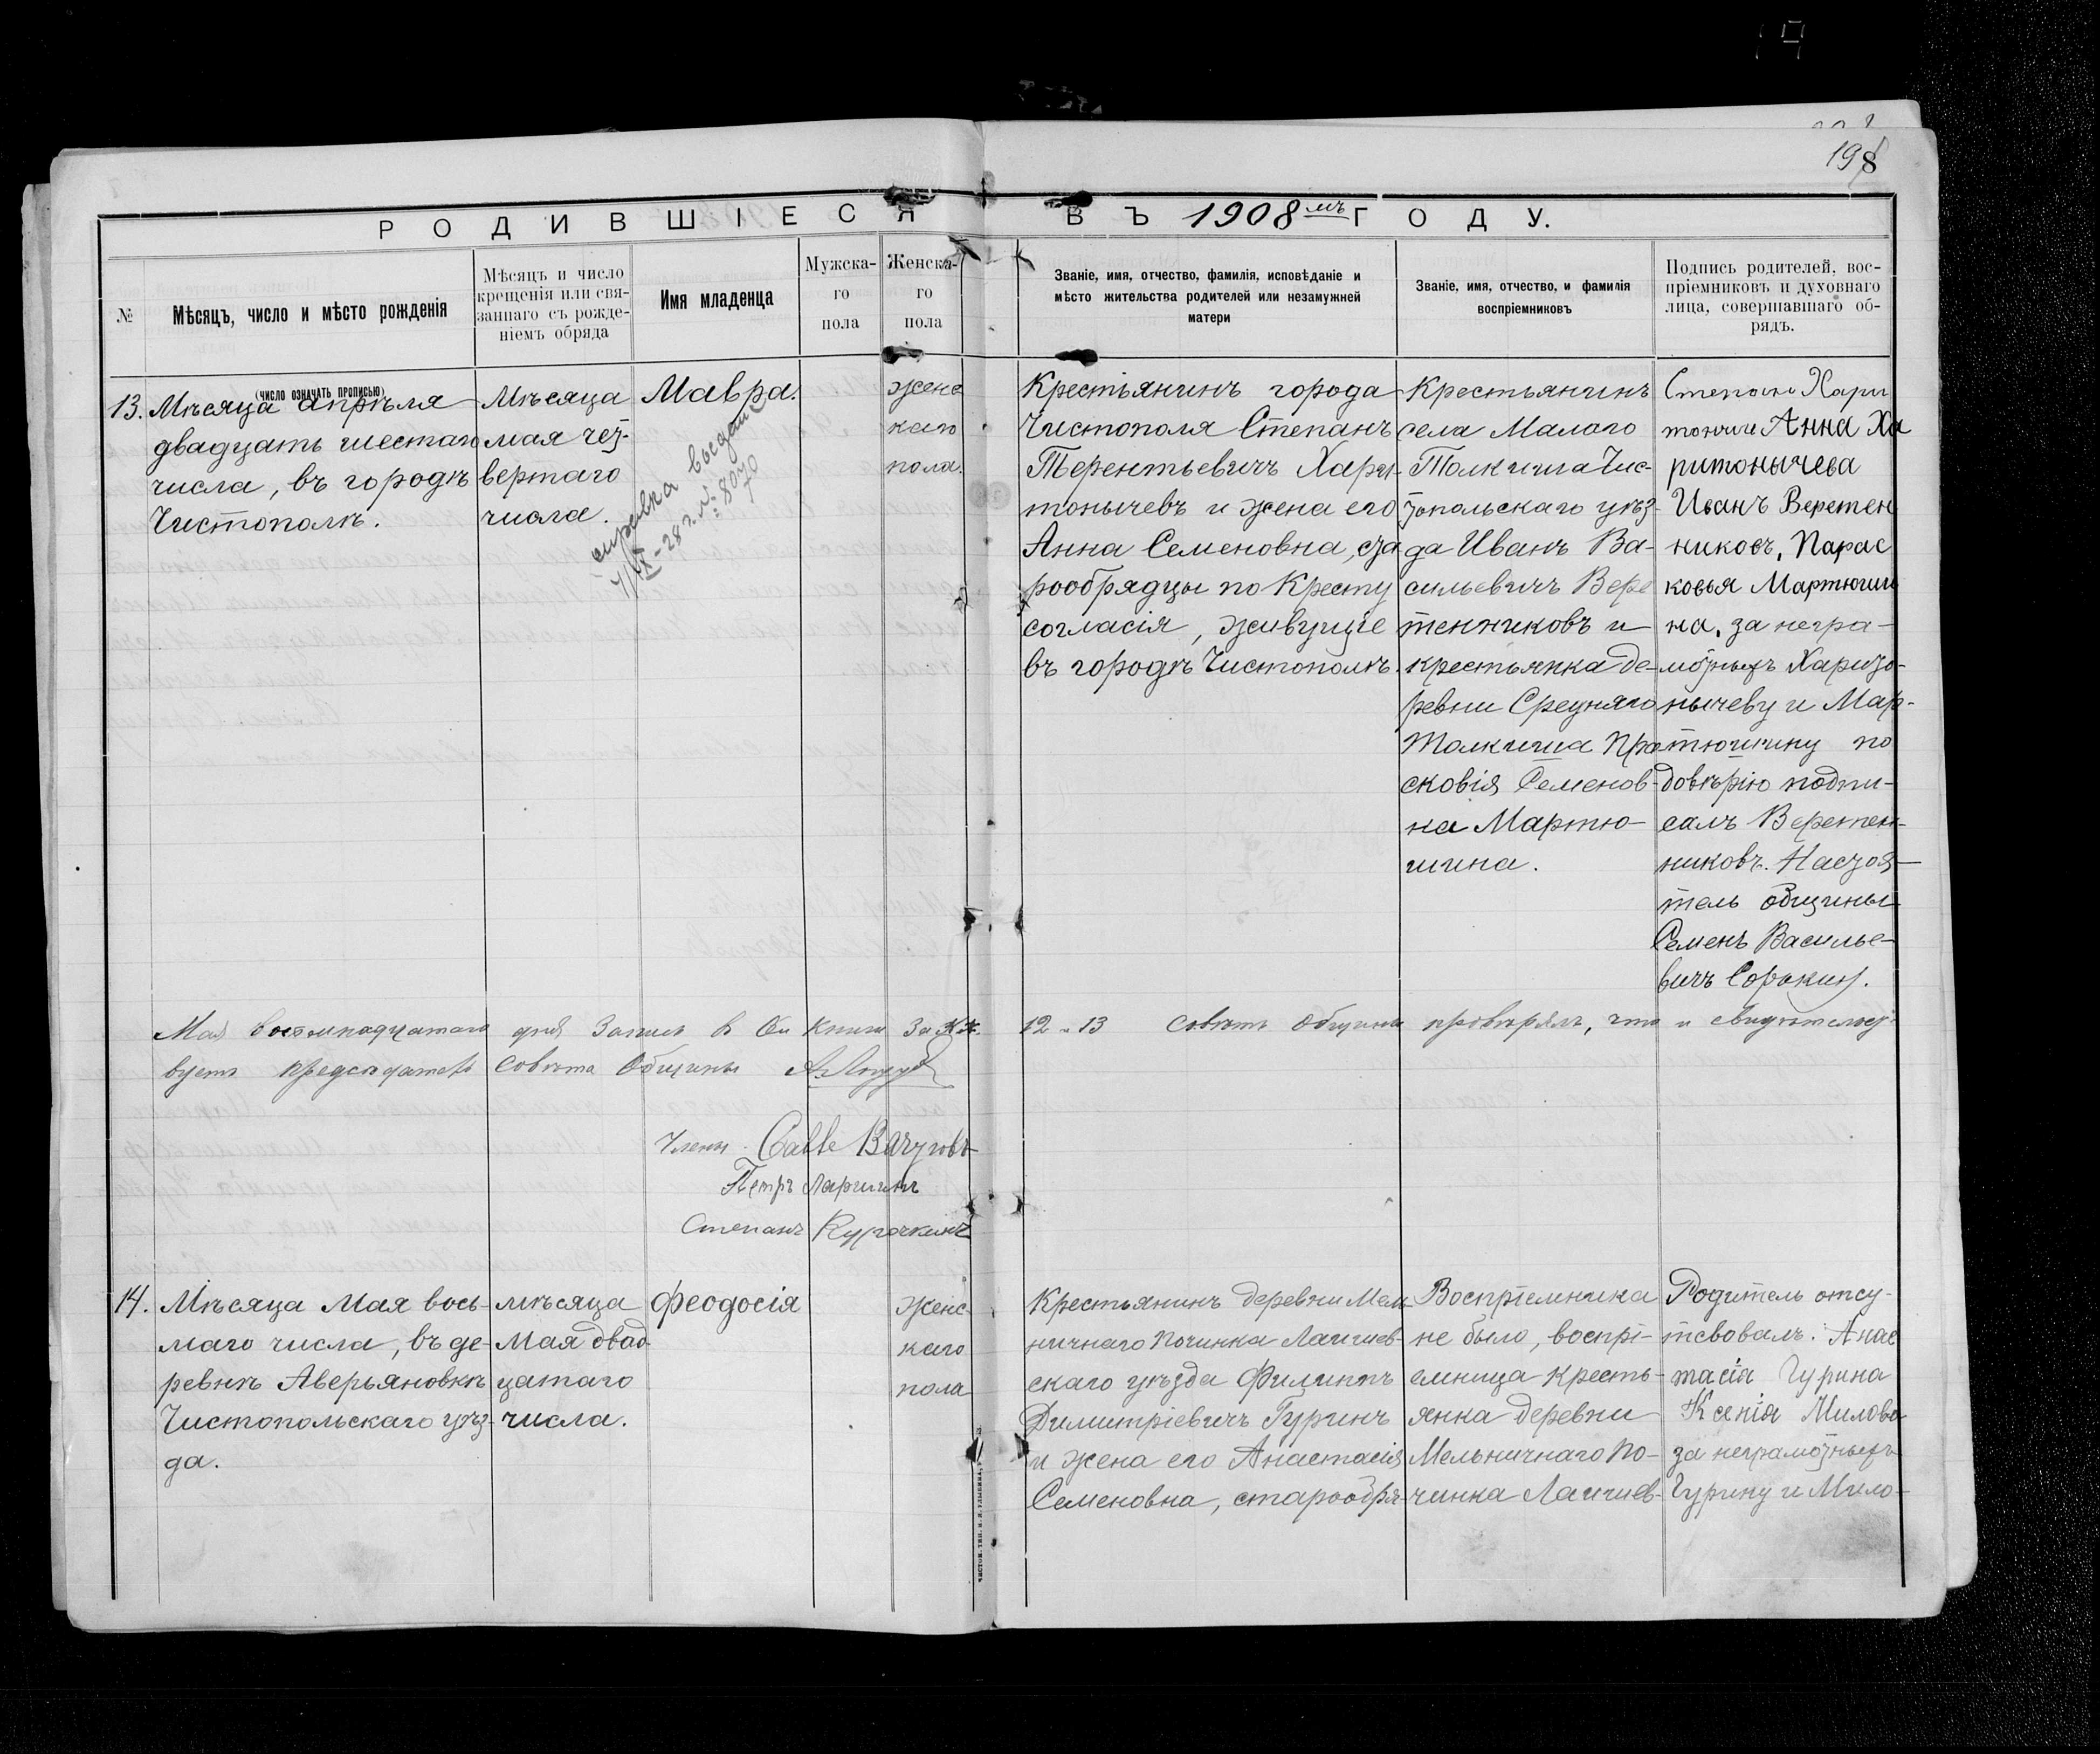 198
РОДИВШІЕСЯ ВЪ 1908мъ ГОДУ.
№
Мѣсяцъ, число и мѣсто рожденія
(число означать прописью)
Мѣсяцъ и число
крещенія или свя-
заннаго съ рожде-
ніемъ обряда
Имя младенца
Мужска-
го
пола
Женска-
го
пола
Званіе, имя, отчество, фамилія, исповѣданіе и
мѣсто жительства родителей или незамужней
матери
Званіе, имя, отчество, и фамилія
воспріемниковъ
Подпись родителей, вос-
пріемниковъ и духовнаго
лица, совершавшаго об-
рядъ.
13.
Мѣсяца Апрѣля
двадцать шестаго
числа, въ городѣ
Чистополѣ.
Мѣсяца
мая чет-
вертаго
числа.
Мавра.
справка выдана
4/IX-28 г. №: 8070
женс
каго
пола.
Крестьянинъ города
Чистополя Степанъ
Терентьевичъ Хари-
тонычевъ и жена его
Анна Семеновна, ста
рообрядцы по Кресту
согласія, живущіе
въ городѣ Чистополѣ.
Крестьянинъ
села Малого
Толкиша Чис-
топольскаго уѣз-
да Иванъ Ва-
сильевичъ Вере
тенниковъ и
крестьянка де-
ревни Средняго
Толкиша Пра
сковія Семенов-
на Мартю-
шина.
Степанъ Хари
тонычев Анна Ха
ритонычева
Иванъ Веретен
никовъ, Парас
ковья Мартюши
на, за негра-
мотныхъ Харито-
нычеву и Мар-
тюшину по
довѣрію подпи-
салъ Веретен-
никовъ. Настоя-
тель общины
Семенъ Василье-
вичъ Сорокинъ.
Мая восемнадцатаго дня Запись в сей книги За №№. 12 и 13 Совѣтъ Общины провѣрялъ, что и свидѣтельст-
вуетъ председатель Совѣта Общины
Члены: Савва Вачуговъ
Петръ Ларшинъ
Степанъ Курочкинъ
14.
Мѣсяца Мая вось-
маго числа, въ де-
ревнѣ Аверьяновкѣ
Чистопольскаго уѣз-
да.
мѣсяца
Мая двад-
цатаго
числа.
Феодосія
Женс-
каго
пола
Крестьянинъ деревни Мель
ничнаго Починка Лаишев-
скаго уѣзда Филиппъ
Димитріевичъ Гуринъ
и жена его Анастасія
Семеновна, старообря-
Воспріемника
не было, воспрі-
емница кресть-
янка деревни
Мельничнаго По-
чинка Лаишев-
Родитель отсу-
тсвовалъ. Анас
тасія Гурина
Ксенія Милова
за неграмотныхъ
Гурину и Мило-
ЧИСТОП. ТИП.